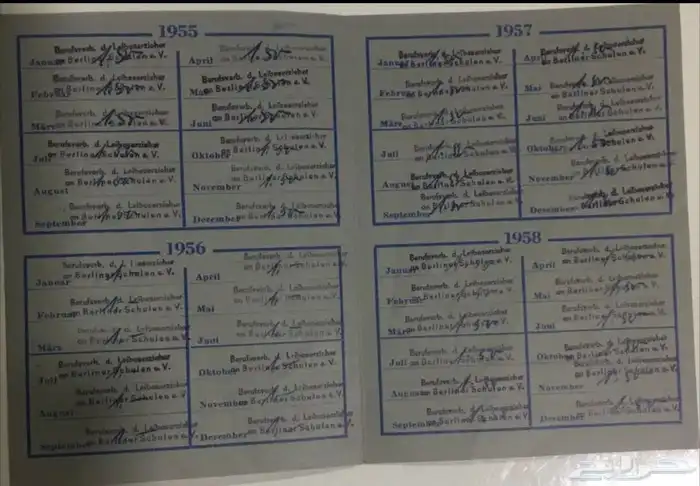 1955
Januar
Berufsverb. d. Leibeserzieher
an Berliner Schulen e. V.
Februar
Berufsverb. d. Leibeserzieher
an Berliner Schulen e. V.
März
Berufsverb. d. Leibeserzieher
an Berliner Schulen e. V.
Juli
Berufsverb. d. Leibeserzieher
an Berliner Schulen e. V.
August
Berufsverb. d. Leibeserzieher
an Berliner Schulen e. V.
September
Berufsverb. d. Leibeserzieher
an Berliner Schulen e. V.
April
1.50
Berufsverb. d. Leibeserzieher
an Berliner Schulen e. V.
Mai
Berufsverb. d. Leibeserzieher
an Berliner Schulen e. V.
Juni
Berufsverb. d. Leibeserzieher
an Berliner Schulen e. V.
Oktober
Berufsverb. d. Leibeserzieher
an Berliner Schulen e. V.
November
Berufsverb. d. Leibeserzieher
an Berliner Schulen e. V.
Dezember
Berufsverb. d. Leibeserzieher
an Berliner Schulen e. V.
1956
Januar
Berufsverb. d. Leibeserzieher
an Berliner Schulen e. V.
Februar
Berufsverb. d. Leibeserzieher
an Berliner Schulen e. V.
März
Berufsverb. d. Leibeserzieher
an Berliner Schulen e. V.
Juli
Berufsverb. d. Leibeserzieher
an Berliner Schulen e. V.
August
Berufsverb. d. Leibeserzieher
an Berliner Schulen e. V.
September
Berufsverb. d. Leibeserzieher
an Berliner Schulen e. V.
April
Berufsverb. d. Leibeserzieher
an Berliner Schulen e. V.
Mai
Berufsverb. d. Leibeserzieher
an Berliner Schulen e. V.
Juni
Berufsverb. d. Leibeserzieher
an Berliner Schulen e. V.
Oktober
Berufsverb. d. Leibeserzieher
an Berliner Schulen e. V.
November
Berufsverb. d. Leibeserzieher
an Berliner Schulen e. V.
Dezember
Berufsverb. d. Leibeserzieher
an Berliner Schulen e. V.
1957
Januar
Berufsverb. d. Leibeserzieher
an Berliner Schulen e. V.
Februar
Berufsverb. d. Leibeserzieher
an Berliner Schulen e. V.
März
Berufsverb. d. Leibeserzieher
an Berliner Schulen e. V.
Juli
Berufsverb. d. Leibeserzieher
an Berliner Schulen e. V.
August
Berufsverb. d. Leibeserzieher
an Berliner Schulen e. V.
September
Berufsverb. d. Leibeserzieher
an Berliner Schulen e. V.
April
Berufsverb. d. Leibeserzieher
an Berliner Schulen e. V.
Mai
Berufsverb. d. Leibeserzieher
an Berliner Schulen e. V.
Juni
Berufsverb. d. Leibeserzieher
an Berliner Schulen e. V.
Oktober
Berufsverb. d. Leibeserzieher
an Berliner Schulen e. V.
November
Berufsverb. d. Leibeserzieher
an Berliner Schulen e. V.
Dezember
Berufsverb. d. Leibeserzieher
an Berliner Schulen e. V.
1958
Januar
Berufsverb. d. Leibeserzieher
an Berliner Schulen e. V.
Februar
Berufsverb. d. Leibeserzieher
an Berliner Schulen e. V.
März
Berufsverb. d. Leibeserzieher
an Berliner Schulen e. V.
Juli
Berufsverb. d. Leibeserzieher
an Berliner Schulen e. V.
August
Berufsverb. d. Leibeserzieher
an Berliner Schulen e. V.
September
Berufsverb. d. Leibeserzieher
an Berliner Schulen e. V.
April
Berufsverb. d. Leibeserzieher
an Berliner Schulen e. V.
Mai
Berufsverb. d. Leibeserzieher
an Berliner Schulen e. V.
Juni
Berufsverb. d. Leibeserzieher
an Berliner Schulen e. V.
Oktober
Berufsverb. d. Leibeserzieher
an Berliner Schulen e. V.
November
Berufsverb. d. Leibeserzieher
an Berliner Schulen e. V.
Dezember
Berufsverb. d. Leibeserzieher
an Berliner Schulen e. V.
حراج